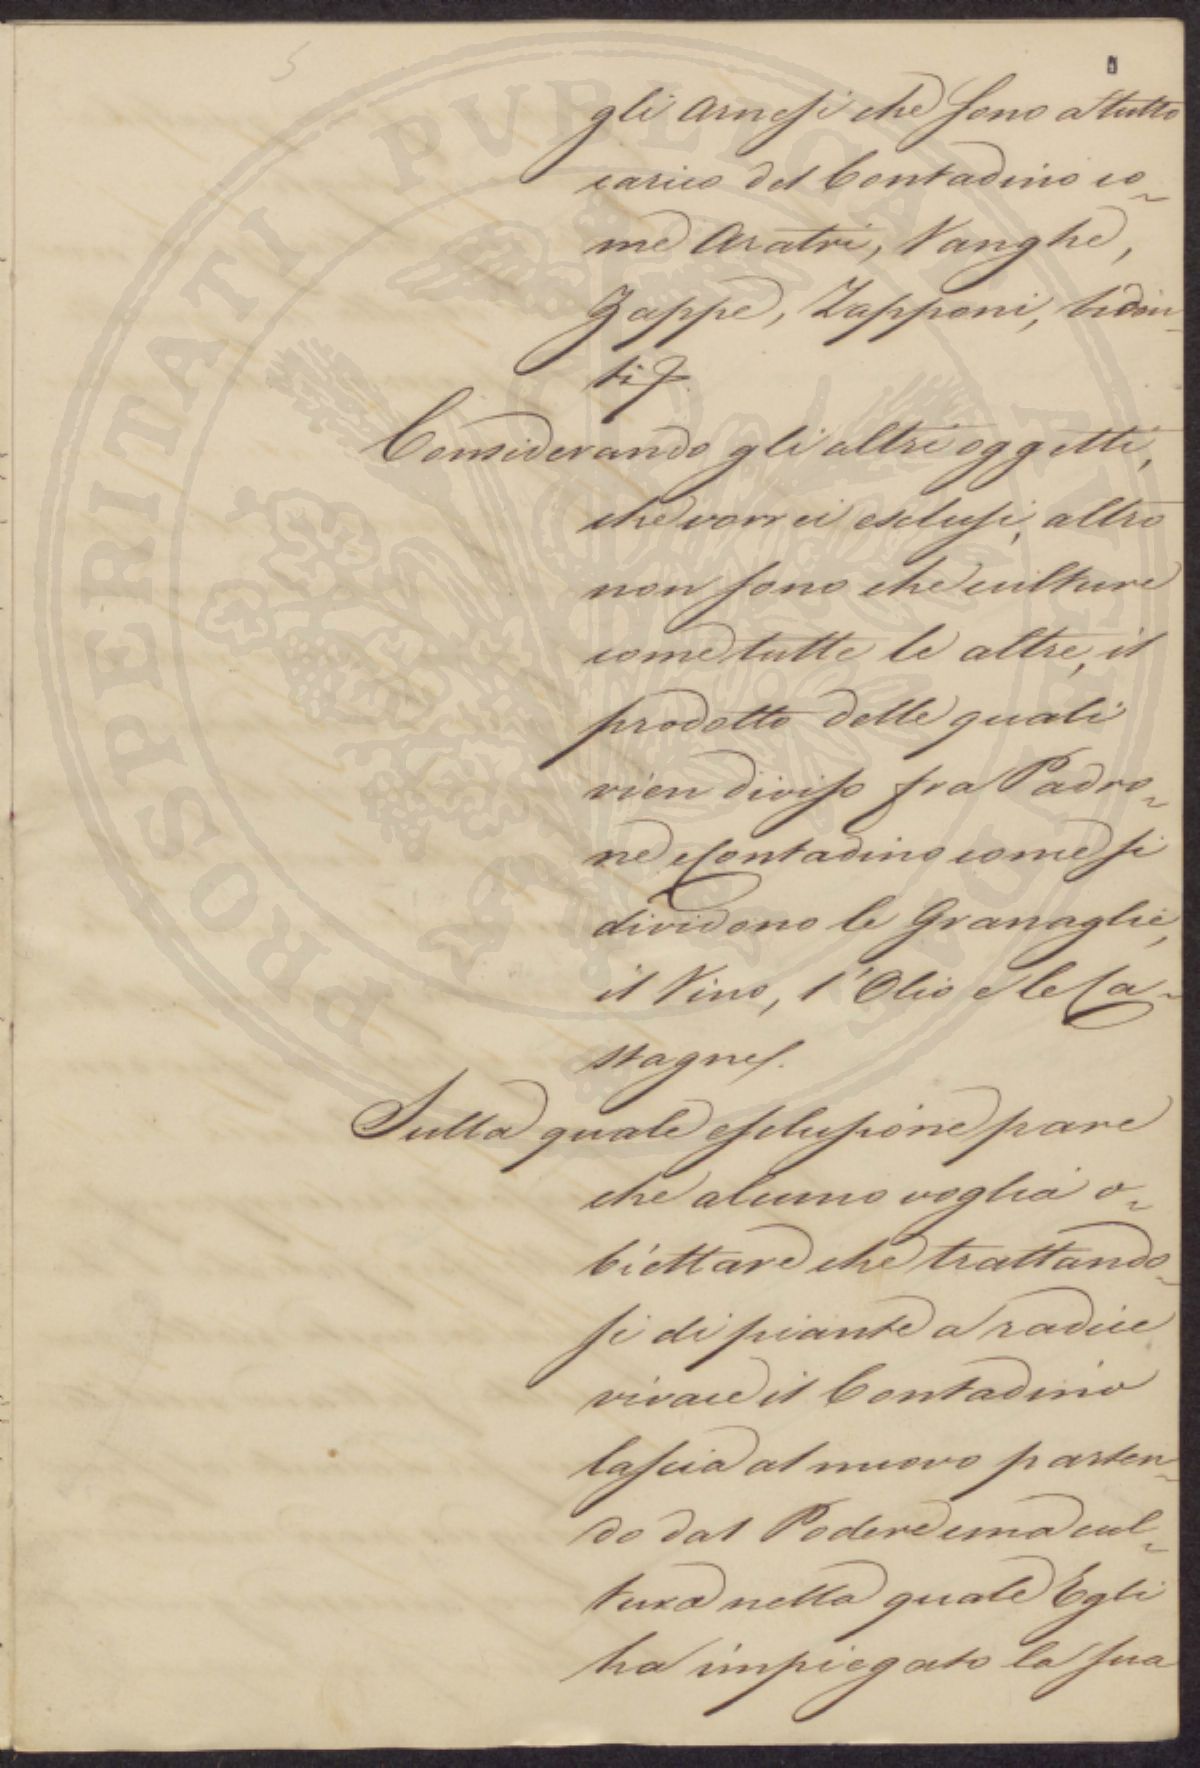 5
gli Arnesi che sono a tutto
carico del Contadino co-
me Aratri, Vanghe,
Zappe, Zapponi, biden-
ti.
Considerando gli altri oggetti,
che vorrei esclusi, altro
non sono che culture
come tutte le altre, il
prodotto delle quali
vien diviso fra Padro-
ne e Contadino come si
dividono le Granaglie,
il Vino, l'Olio e le Ca-
stagne.
Sulla quale esclusione pare
che alcuno voglia o-
biettare che trattando-
si di piante a radice
vivace il Contadino
lascia al nuovo parten-
do dal Podere una cul-
tura nella quale Egli
ha impiegato la sua
PROSPERITATI PUBLICAE AUGENDAE